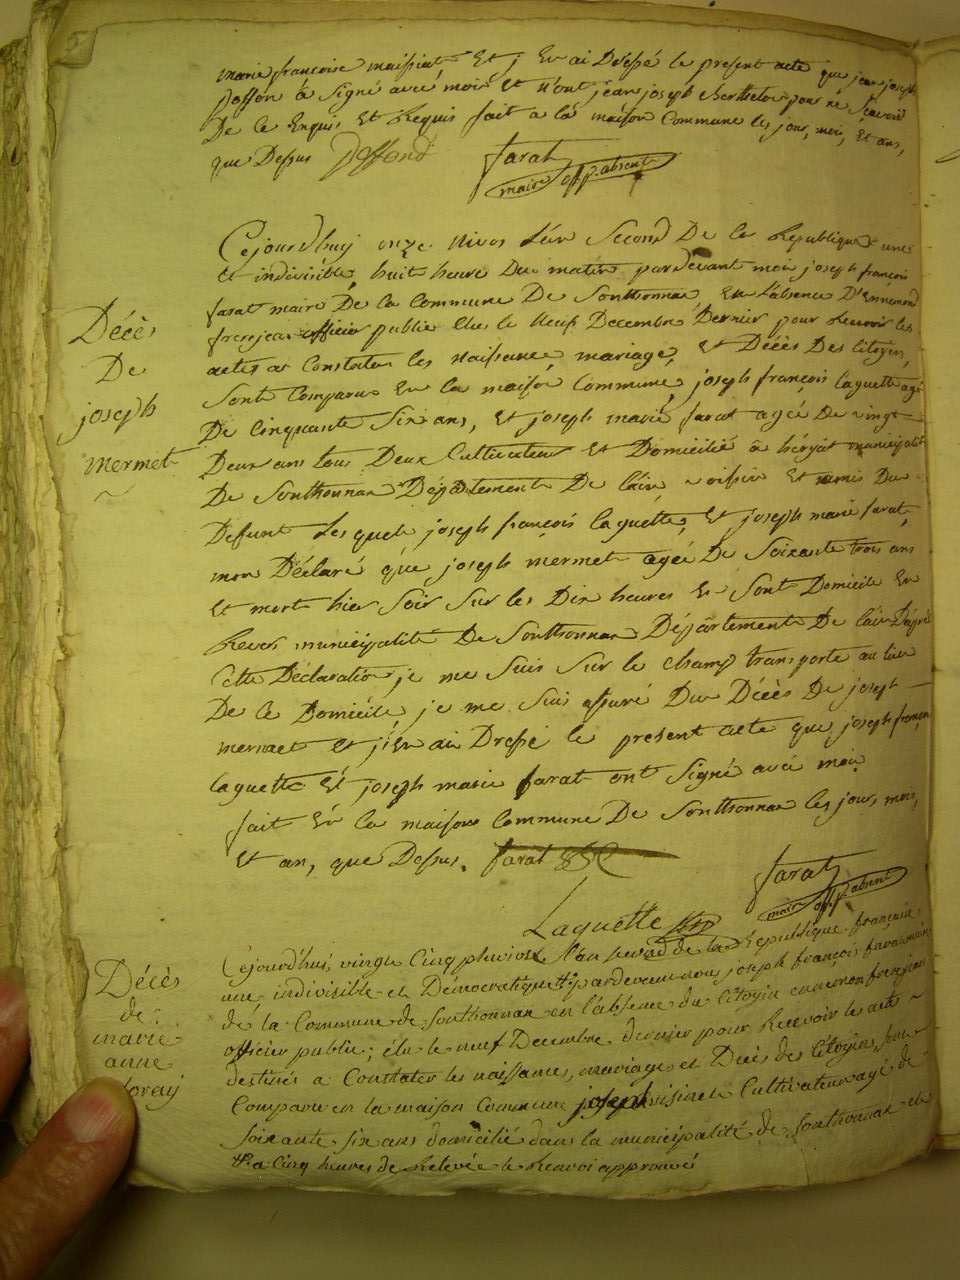 marie françoise maissiat Et j'En ai Dréssé le present acte que jean joseph
à Signé avec moi Et n'ont jean joseph Berthelon pour ne Scavoir
De ce Enquis Et Requis fait a la maison Commune les jour, mois, Et ans,
que Dessus
farat
maire off. p. absent
Cejourd'huy onze nivos L'an Second De la Republique une
Et indivisible, huit heure Du matin pardevant moi joseph françois
farat maire De la Commune De Sonthonnax, En L'absence D'Ennemond
frerejean officier public Elus le Neuf Decembre Dernier pour Recevoir les
actes a Constater les Naissance, mariage, Et Décès Des Citoyen,
Sont Comparus En la maison Commune, joseph françois laguette agé
De Cinquante Six ans, Et joseph marie farat agée De vingt
Deux ans tous Deux Cultivateur Et Domicilié à municipalité
De Sonthonnax Département De l'ain voisin Et amis Du
Defunt Les quels joseph françois laguette, Et joseph marie farat,
mon Déclaré que joseph mermet agée De Soixante trois ans
Et mort hier Soir Sur les Dix heures En Sont Domicile En
municipalité De Sonthonnax Département De l'ain D'après
Cette Déclaration je me Suis Sur le champ transporté au lieu
De ce Domicile, je me Suis assuré Du Décès De joseph
mermet Et j'En ai Dressé le present acte que joseph françois
laguette Et joseph marie farat ont Signé avec moi
fait En la maison Commune De Sonthonnax les jour, mois,
Et an, que Dessus. farat
farat
maire off. p. absent
Laguette
Décès
De
joseph
mermet
Cejourd'hui vingt Cinq pluviose l'an second de la Republique française
une, indivisible et Démocratique pardevant nous joseph françois farat maire
de la Commune de Sonthonnax en l'absence du Citoyen ennemon frerejean
officier public; élu le neuf Decembre dernier pour Recevoir les actes
destinés a Constater les naissances, mariages et Décès des Citoyens, sont
Comparu en la maison Commune joseph Cultivateur agé de
Soixante six ans domicilié dans la municipalité de Sonthonnax et
a Cinq heures de Relevée le Renvoi approuvé
Décès
de
marie
anne